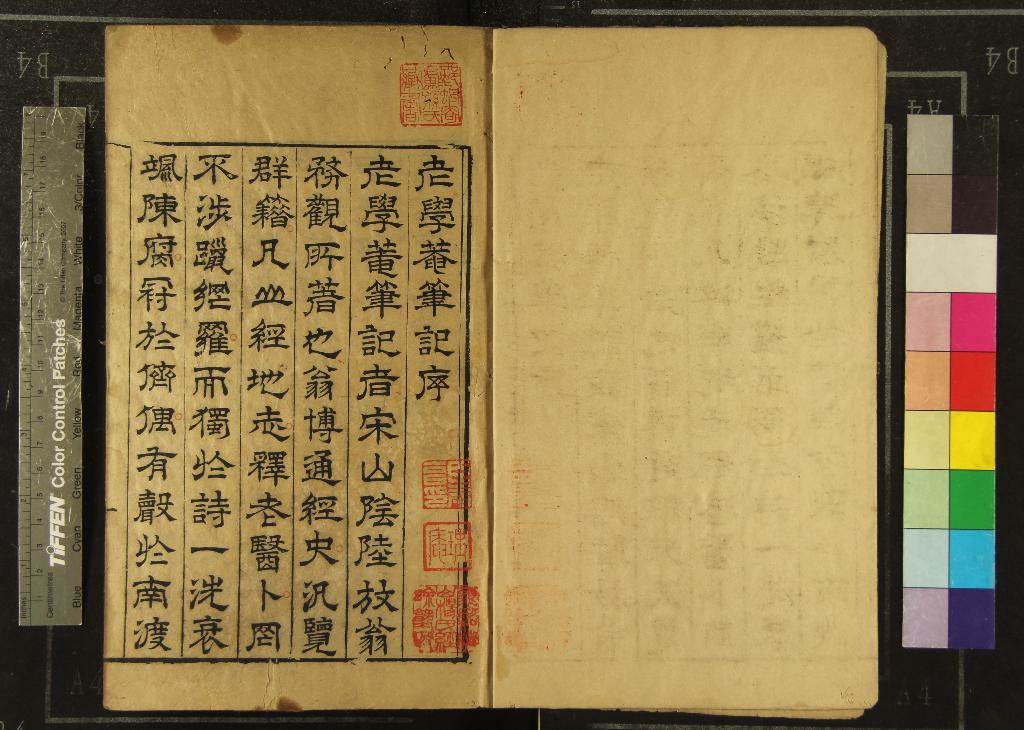 老學菴筆記序
老學菴筆記者宋山陰陸放翁
務觀所著也翁博通經史汎覽
群籍凡山經地志釋老醫卜罔
不涉躐綑羅而獨於詩一洗衰
颯陳腐冠於儕偶有聲於南渡
TIFFEN Color Control Patches
© The Tiffen Company, 2007
Blue Cyan Green Yellow Red Magenta White 3/Color Black
Inches
Centimetres
B4
A4
B4
A4
A4
A4